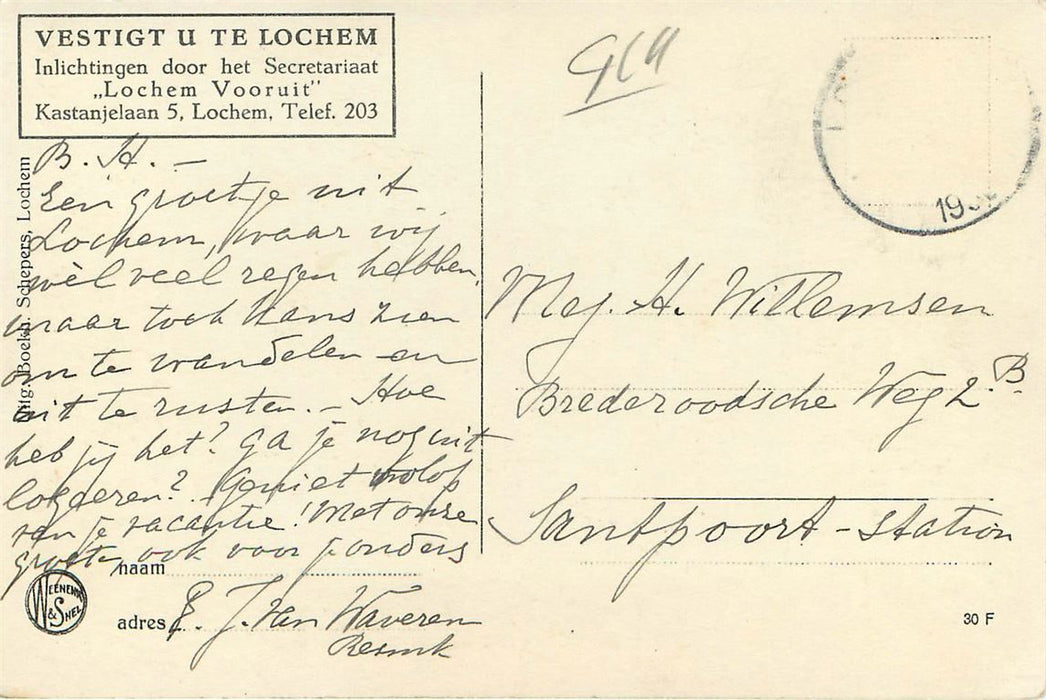 VESTIGT U TE LOCHEM
Inlichtingen door het Secretariaat
„Lochem Vooruit"
Kastanjelaan 5, Lochem, Telef. 203
Uitg. Boekh. Schepers, Lochem
B. H. —
Een groetje uit
Lochem, waar wij
wèl veel regen hebben,
maar toch kans zien
om te wandelen en
uit te rusten. — Hoe
heb jij het? Ga je nog uit
logeeren? Geniet volop
van je vacantie! Met onze
groeten, ook voor je ouders
naam
adres E. J. van Waveren
WEENENK & SNEL
G L H
19
Mej. H. Willemsen
Brederoodsche Weg 2 B
Santpoort - Station
30 F